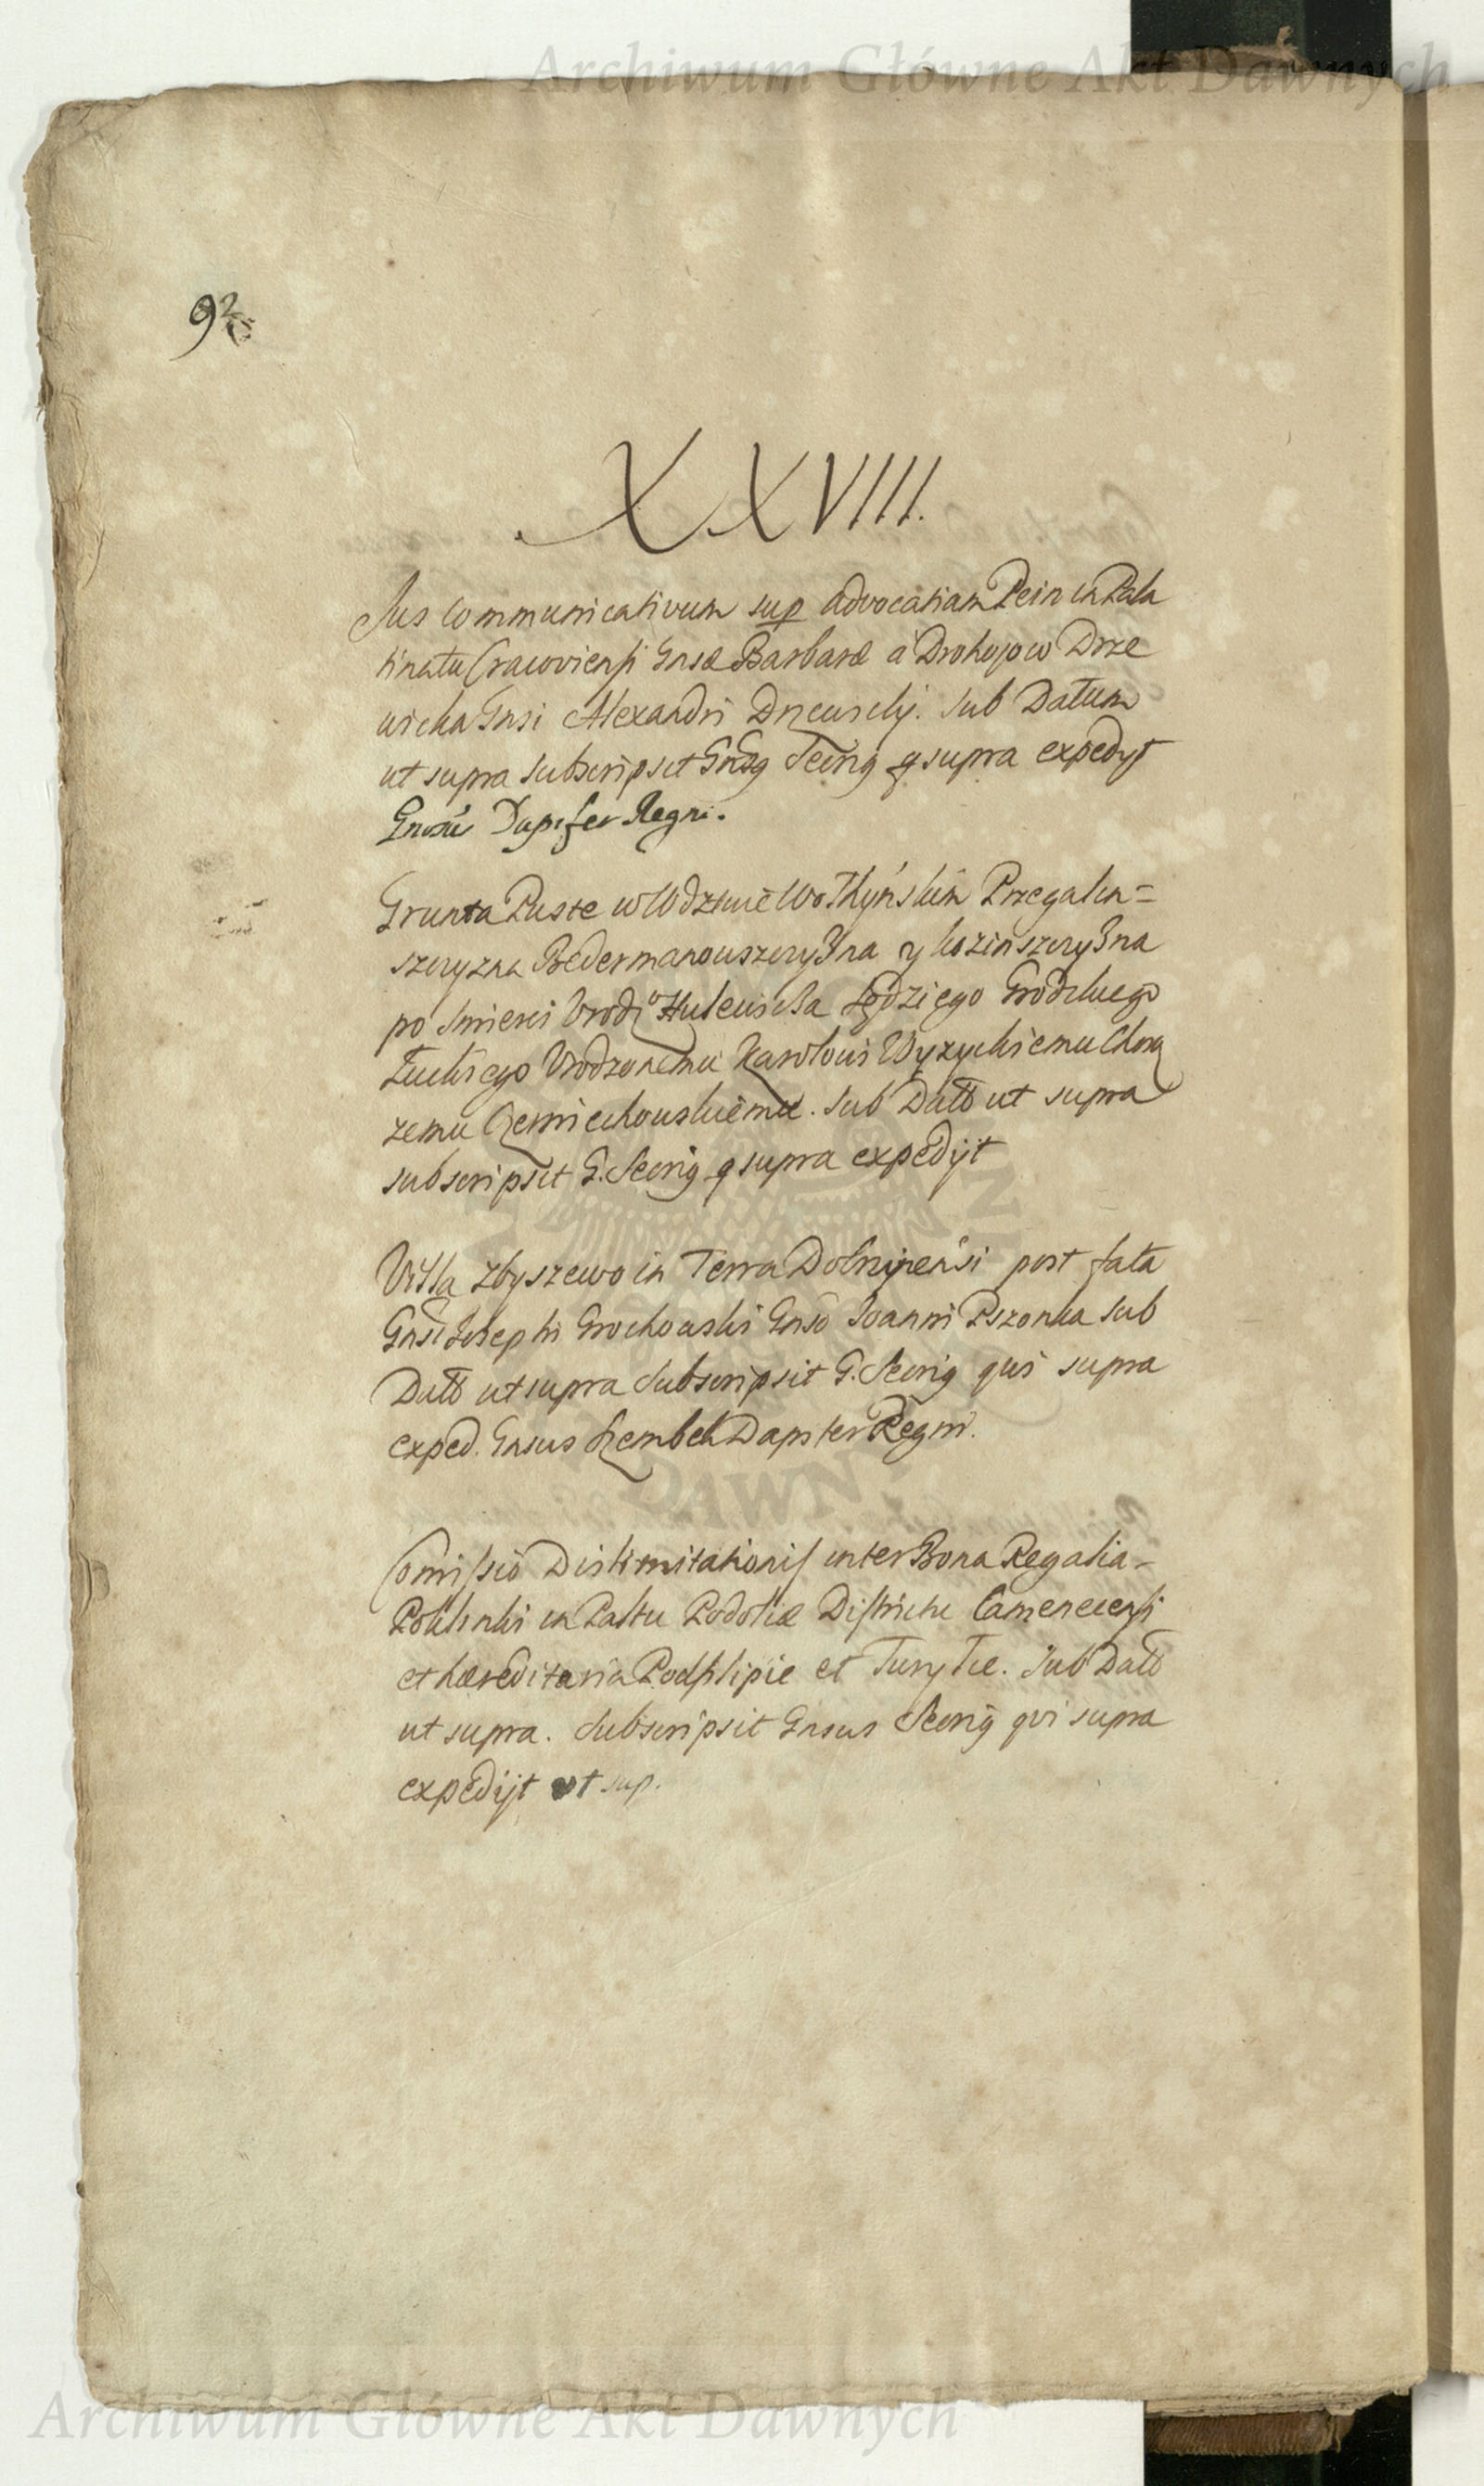 Archiwum Główne Akt Dawnych
92
XXVIII.
Jus Communicativum sup Advocatiam Pcin in Pala
tinatu Cracoviensi Gnsæ Barbaræ a Drohojow Drze
wicka Gnsi Alexandri Drzewickij. Sub Datum
ut supra Subscripsit Gnsg Secrig q supra expedyt
Gnosus Dapifer Regni.
Grunta Puste w Wdztwie Wołhyńskim Przegalin=
szczyzna Bedermanowszczyzna y kozinszczyzna
po śmierci Urodzo Hulewicza Sędziego Grodzkiego
Łuckiego Urodzonemu Karolowi Wyzyckiemu Chorą
zemu Czerniechowskiemu. Sub Datt ut supra
subscripsit G. Secrig q supra expedijt
Villa Zbyszewo in Terra Dobrzynensi post fata
Gnsi Josephi Grochowski Gnso Joanni Pszonka Sub
Datt ut supra Subscripsit G. Secrig qui supra
exped. Gnsus Szembek Dapifer Regni.
Comissio Dislimitationis inter Bona Regalia
in Palttu Podoliæ Districtu Camenecensi
et hæreditaria Podfilipie et Sub Datt
ut supra. Subscripsit Gnsus Secrig qvi supra
expedijt ut sup.
DAWN
Archiwum Główne Akt Dawnych